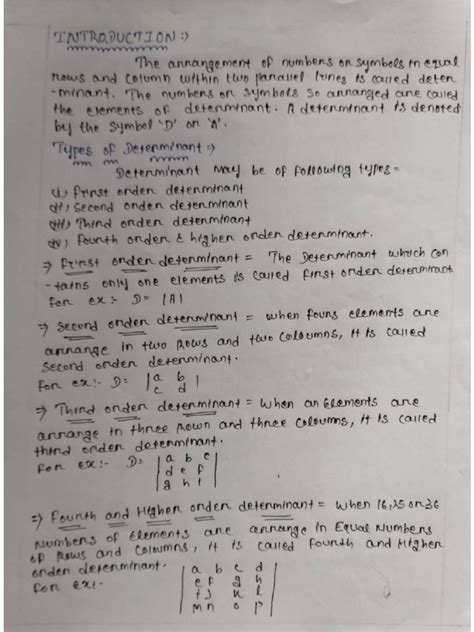 INTRODUCTION :⇒
The arrangement of numbers or symbols in equal
rows and column within two parallel lines is called deter
-minant. The numbers or symbols so arranged are called
the elements of determinant. A determinant is denoted
by the symbol 'D' or 'Δ'.
Types of Determinant :⇒
Determinant may be of following types =
(i) First order determinant
(ii) Second order determinant
(iii) Third order determinant
(iv) Fourth order & higher order determinant.
⇒ First order determinant = The Determinant which con
-tains only one elements is called first order determinant
For ex :- D = |A|
⇒ Second order determinant = when fours elements are
arrange in two Rows and two Coloumns, it is called
second order determinant.
For ex:- D= | a b |
c d
⇒ Third order determinant = when an Elements are
arrange in three Rown and three coloumns, it is called
third order determinant.
For ex:- D= | a b c |
| d e f |
| g h i |
⇒ Fourth and Higher order determinant = when 16,25 or 36
Numbers of Elements are arrange in Equal Numbers
of Rows and Coloumns, it is called Fourth and Higher
order determinant.
For ex:- | a b c d |
| e f g h |
| i j k l |
| m n o p |